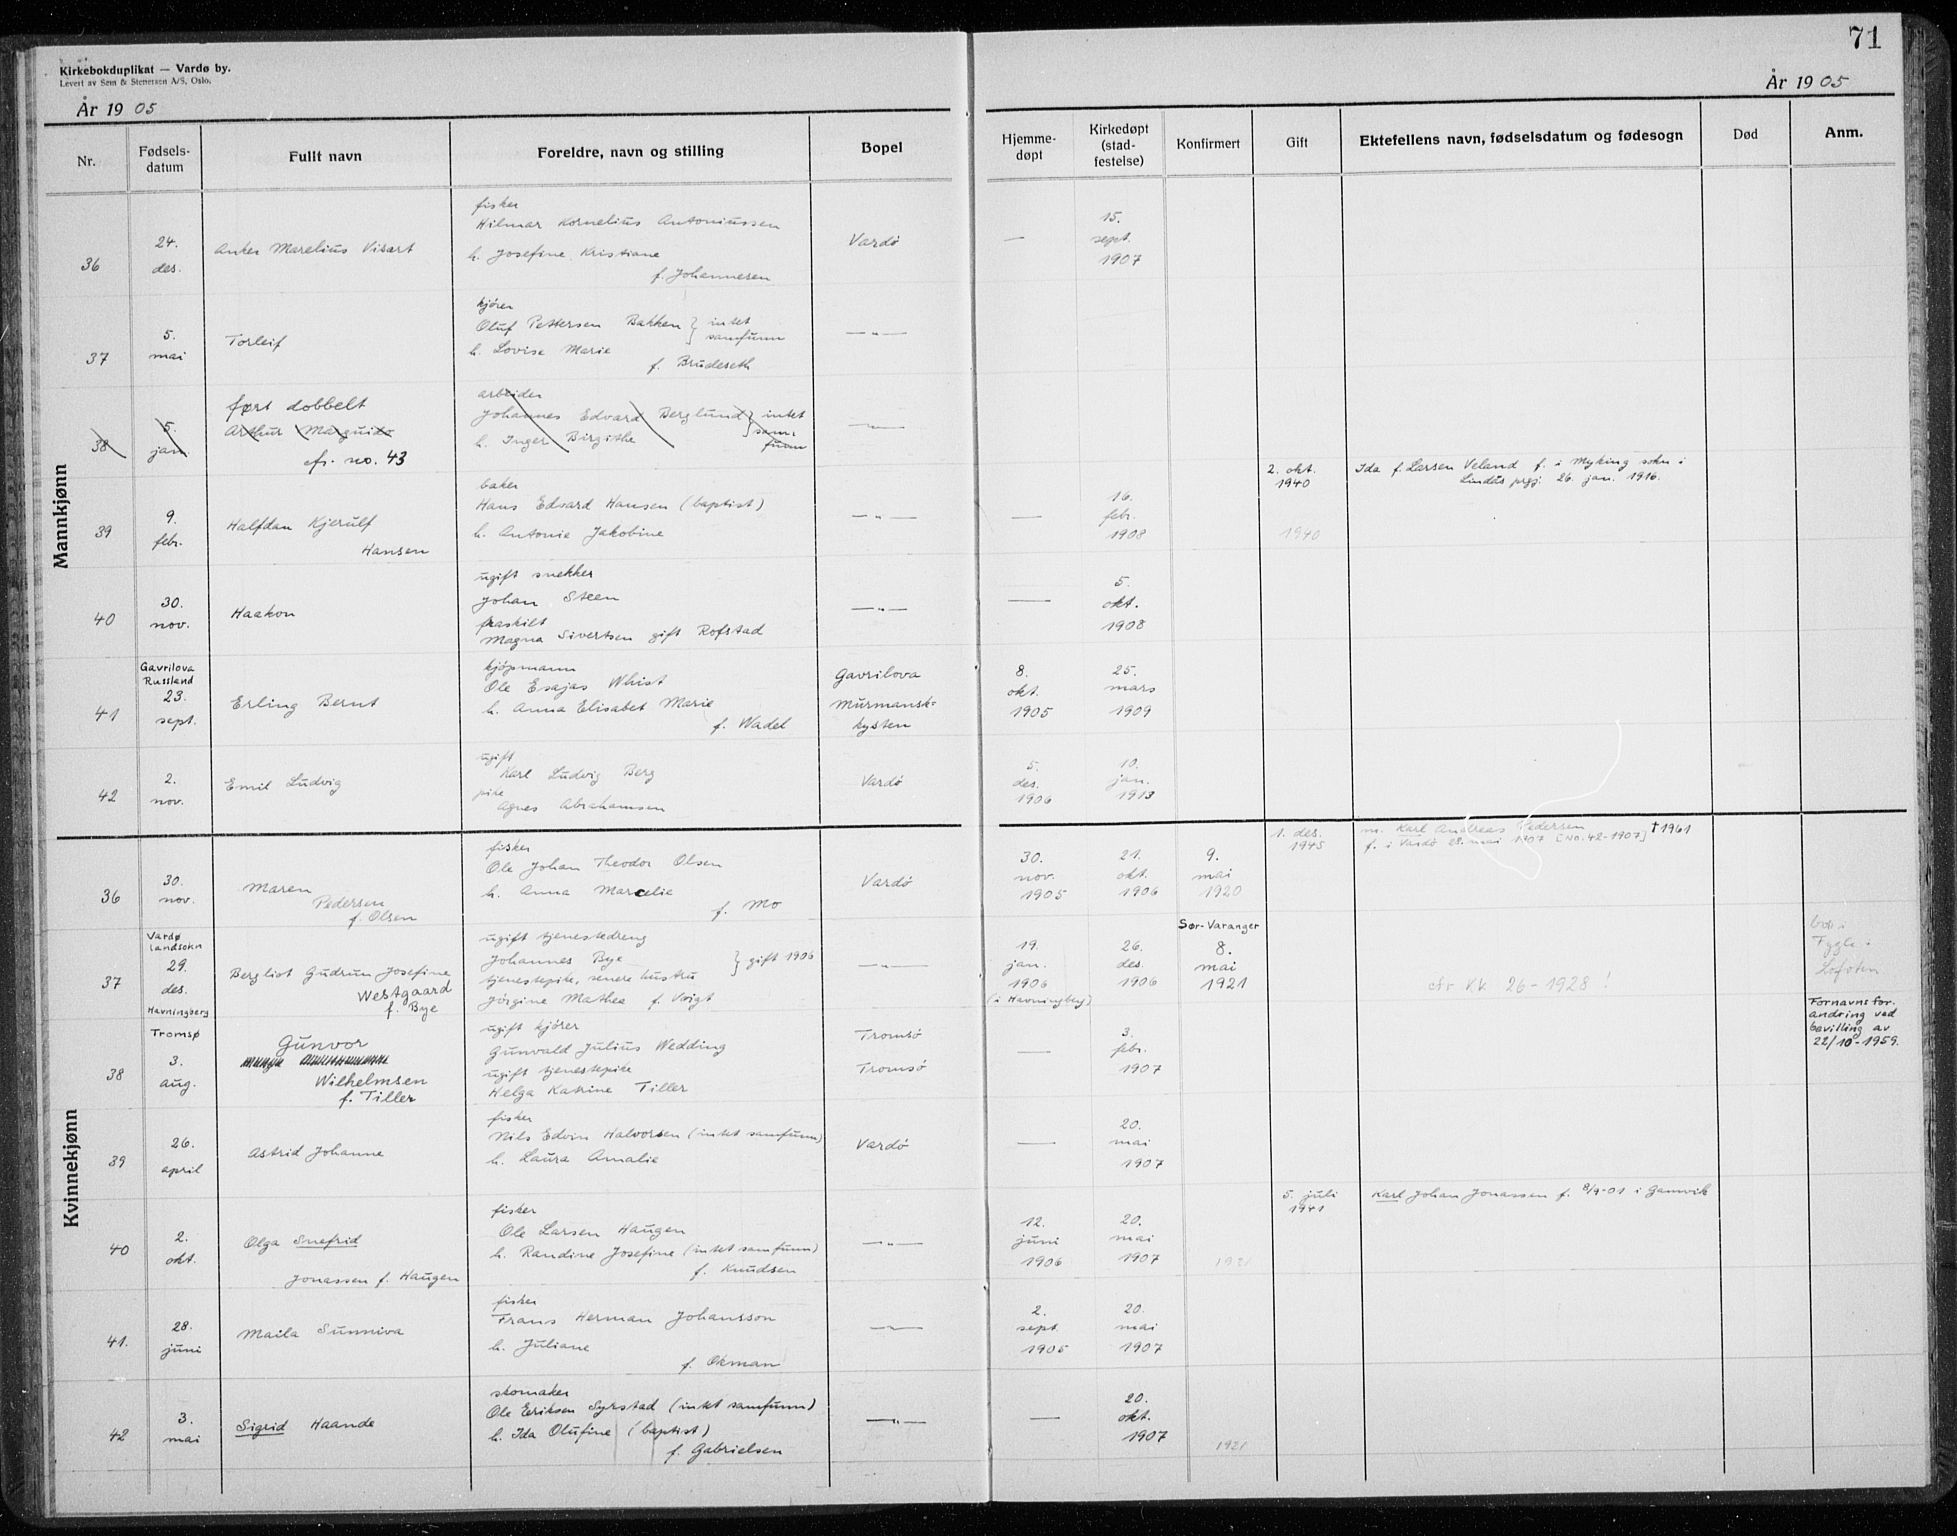 71
Kirkebokduplikat — Vardø by.
Levert av Sem & Stenersen A/S, Oslo.
År 1905
År 1905
Nr.
Fødsels-
datum
Fullt navn
Foreldre, navn og stilling
Bopel
Hjemme-
døpt
Kirkedøpt
(stad-
festelse)
Konfirmert
Gift
Ektefellens navn, fødselsdatum og fødesogn
Død
Anm.
Mannkjønn
36
24.
des.
Anker Marelius Viseart
fisker
Hilmar Kornelius Antoniussen
h. Josefine Kristiane
f. Johannesen
Vardø
—
15.
sept.
1907
37
5.
mai
Torleif
kjører
Oluf Pettersen Bakken } intet
samfunn
h. Lovise Marie
f. Brudeseth
—"—
38
5.
jan.
ført dobbelt
Arthur Marguido
cfr. no. 43
arbeider
Johannes Edvard Berglund } intet
sam-
funn
h. Inger Birgithe
—"—
39
9.
febr.
Halfdan Kjerulf
Hansen
baker
Hans Edvard Hansen (baptist)
h. Antonie Jakobine
—"—
—
16.
febr.
1908
2. okt.
1940
1940
Ida f. Larsen Veland f. i Myking sokn i
Lindås prgj. 26. jan. 1916.
40
30.
nov.
Haakon
ugift snekker
Johan Steen
fraskilt
Magna Sivertsen gift Rofstad
—"—
—
5.
okt.
1908
41
Gavrilova
Russland
23.
sept.
Erling Bernt
kjøpmann
Ole Esajas Whist
h. Anna Elisabet Marie
f. Wadel
Gavrilova
Murmansk-
kysten
8.
okt.
1905
25.
mars
1909
42
2.
nov.
Emil Ludvig
ugift
Karl Ludvig Berg
pike
Agnes Abrahamsen
Vardø
5.
des.
1906
10.
jan.
1913
Kvinnekjønn
36
30.
nov.
Maren
Pedersen
f. Olsen
fisker
Ole Johan Theodor Olsen
h. Anna Marcelie
f. Mo
Vardø
30.
nov.
1905
21.
okt.
1906
9.
mai
1920
1. des.
1945
m. Karl Andreas Pedersen
f. i Vardø 28. mai 1907 [No. 42-1907] †1961
37
Vardø
landsokn
29.
des.
Havningberg
Bergliot Gudrun Josefine
Westgaard
f. Bye
ugift tjenestedreng
Johannes Bye } gift 1906
tjenestepike, senere hustru
Jørgine Mathea f. Voigt
—"—
19.
jan.
1906
(i Havningberg)
26.
des.
1906
Sør-Varanger
8.
mai
1921
cfr KK 26-1928 !
bor i
Fygle i
Lofoten
38
Tromsø
3.
aug.
Gunvor
Wilhelmsen
f. Tiller
ugift kjører
Gunvald Julius Wedding
ugift tjenestepike
Helga Katrine Tiller
Tromsø
Tromsø
—
3.
febr.
1907
Fornavnsfor.
andring ved
bevilling av
22/10-1959.
39
26.
april
Astrid Johanne
fisker
Nils Edvin Halvorsen (intet samfunn)
h. Laura Amalie
Vardø
—
20.
mai
1907
40
2.
okt.
Olga Snefrid
Jonassen f. Haugen
fisker
Ole Larsen Haugen
h. Randine Josefine (intet samfunn)
f. Knudsen
—"—
12.
juni
1906
20.
mai
1907
1921
5. juli
1941
Karl Johan Jonassen f. 8/9-01 i Gamvik
41.
28.
juni
Maila Sunniva
fisker
Frans Herman Johansson
h. Juliane
f. Okman
—"—
2.
sept.
1905
20.
mai
1907
42
3.
mai
Sigrid Haande
skomaker
Ole Eriksen Syrstad (intet samfunn)
h. Ida Olufine (baptist)
f. Gabrielsen
—"—
—
20.
okt.
1907
1921